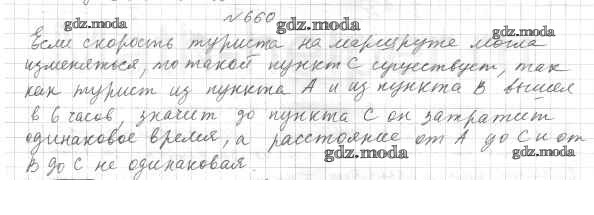 №660
gdz.moda gdz.moda gdz.moda
Если скорость туриста на маршруте могла
изменяться, то такой пункт С существует, так
как турист из пункта А и из пункта В вышел
в 6 часов, значит до пункта С он затратит
одинаковое время, а расстояние от А до С и от
В до С не одинаковая.
gdz.moda gdz.moda